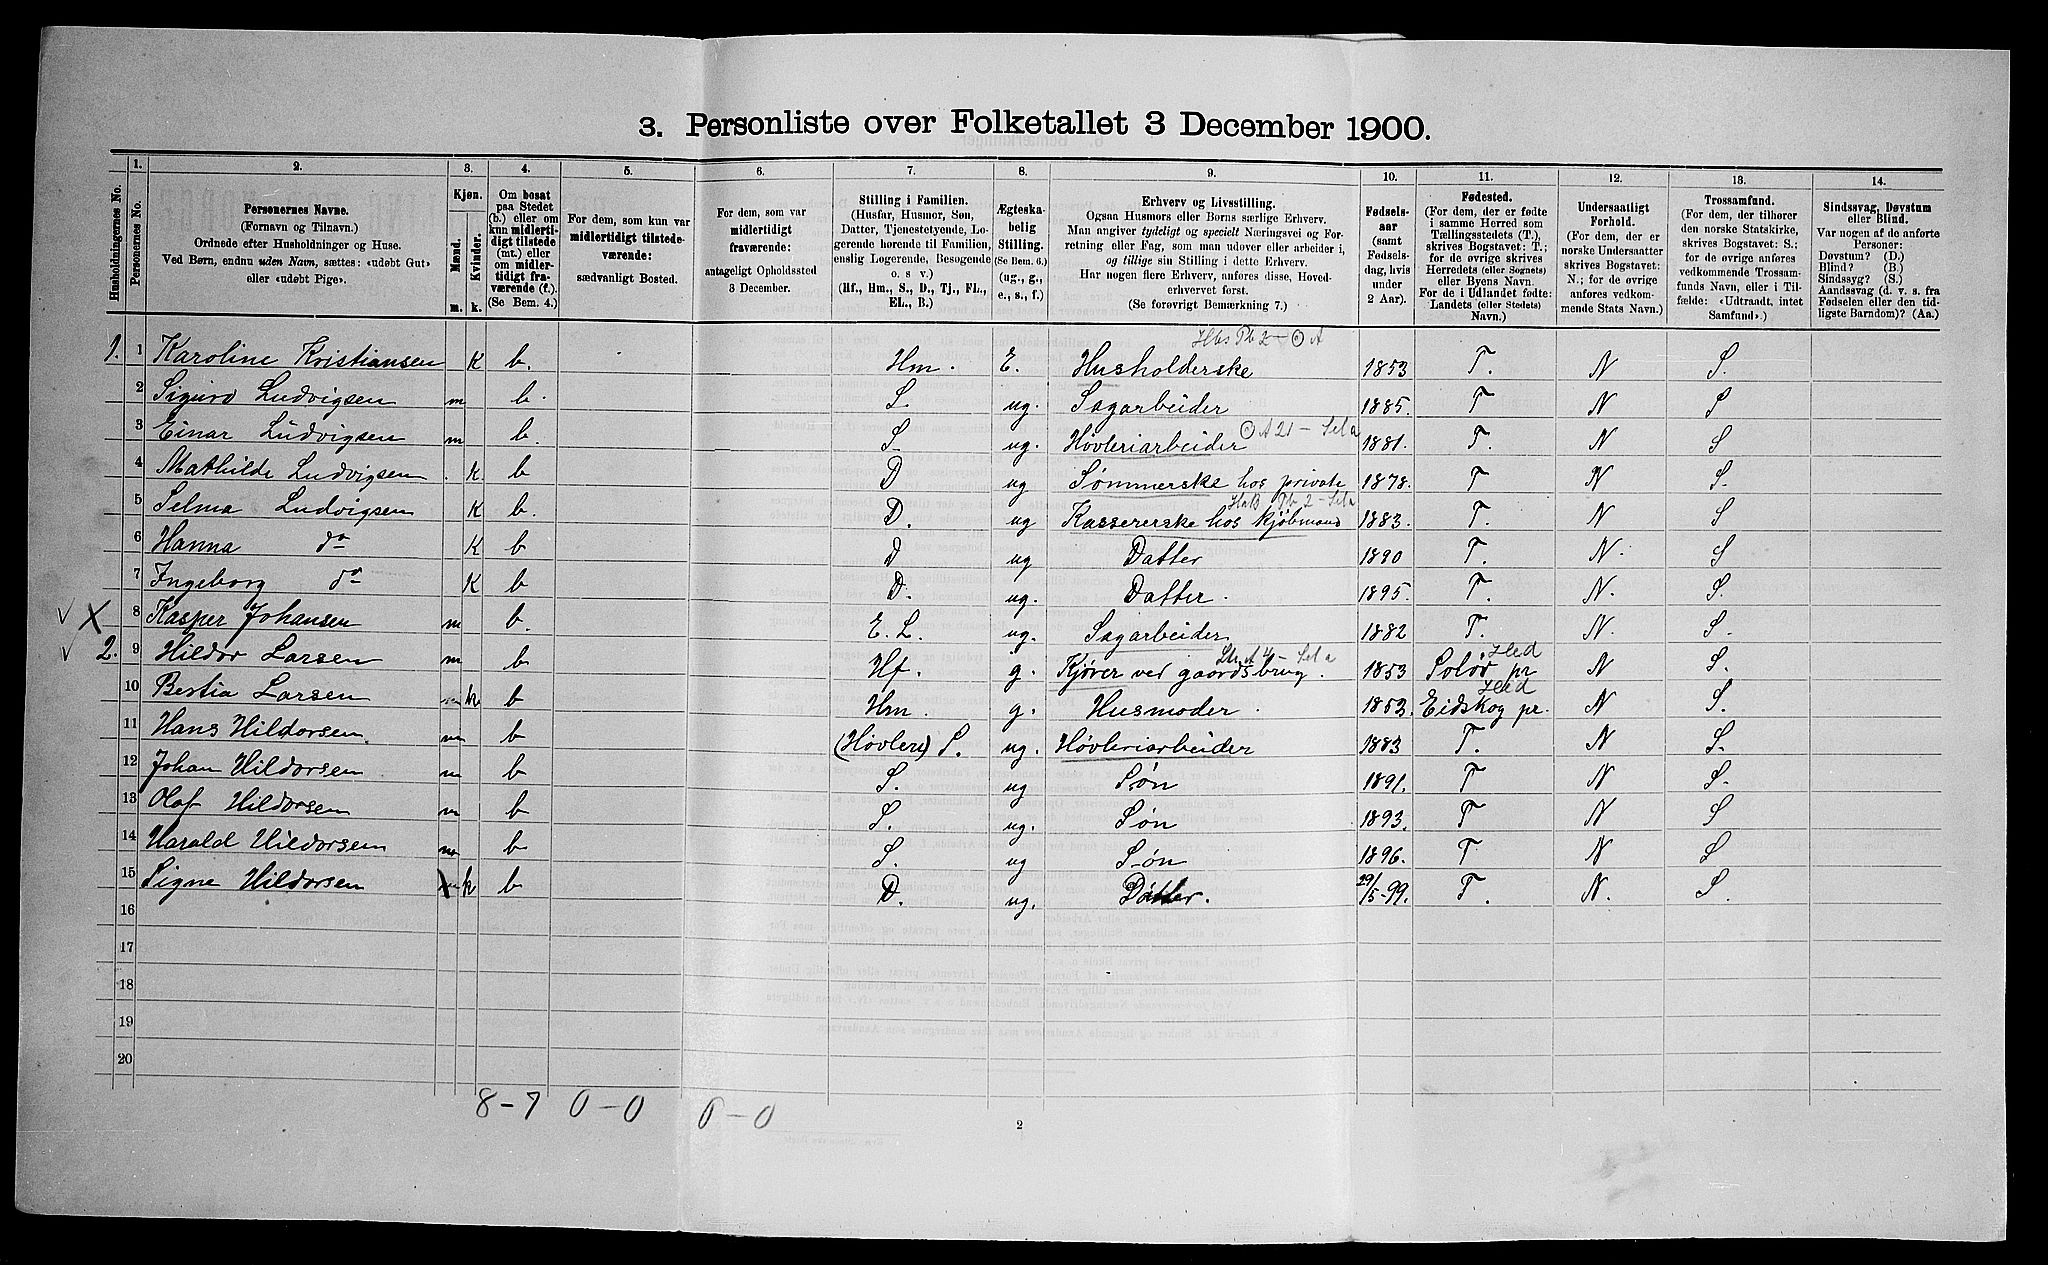 3. Personliste over Folketallet 3 December 1900.
1. 2. 3. 4. 5. 6. 7. 8. 9. 10. 11. 12. 13. 14.
Husholdningernes No.
Personernes No.
Personernes Navne.
(Fornavn og Tilnavn.)
Ordnede efter Husholdninger og Huse.
Ved Børn, endnu uden Navn, sættes: «udøbt Gut»
eller «udøbt Pige».
Kjøn.
Mænd.
Kvinder.
m. k.
Om bosat
paa Stedet
(b.) eller om
kun midlerti-
digt tilstede
(mt.) eller
om midler-
tidigt fra-
værende (f.).
(Se Bem. 4.)
For dem, som kun var
midlertidigt tilstede-
værende:
sædvanligt Bosted.
For dem, som var
midlertidigt
fraværende:
antageligt Opholdssted
3 December.
Stilling i Familien.
(Husfar, Husmor, Søn,
Datter, Tjenestetyende, Lo-
gerende hørende til Familien,
enslig Logerende, Besøgende
o. s v.)
(Hf., Hm., S., D., Tj., FL.,
EL., B.)
Ægteska-
belig
Stilling.
(Se Bem. 6.)
(ug., g.,
e., s., f.)
Erhverv og Livsstilling.
Ogsaa Husmors eller Børns særlige Erhverv.
Man angiver tydeligt og specielt Næringsvei og For-
retning eller Fag, som man udover eller arbeider i,
og tillige sin Stilling i dette Erhverv.
Har nogen flere Erhverv, anføres disse, Hoved-
erhvervet først.
(Se forøvrigt Bemærkning 7.)
Fødsels-
aar
(samt
Fødsels-
dag, hvis
under
2 Aar).
Fødested.
(For dem, der er fødte
i samme Herred som
Tællingsstedets (T.),
skrives Bogstavet: T.;
for de øvrige skrives
Herredets (eller Sognets)
eller Byens Navn.
For de i Udlandet fødte:
Landets (eller Stedets)
Navn.)
Undersaatligt
Forhold.
(For dem, der er
norske Undersaatter
skrives Bogstavet:
N.; for de øvrige
anføres vedkom-
mende Stats Navn.)
Trossamfund.
(For dem, der tilhører
den norske Statskirke,
skrives Bogstavet: S.;
for de øvrige anføres
vedkommende Trossam-
funds Navn, eller i Til-
fælde: «Udtraadt, intet
Samfund».)
Sindssvag, Døvstum
eller Blind.
Var nogen af de anførte
Personer:
Døvstum? (D.)
Blind? (B.)
Sindssyg? (S.)
Aandssvag (d. v. s. fra
Fødselen eller den tid-
ligste Barndom)? (Aa.)
1. 1 Karoline Kristiansen K b. Hm. E. Husholderske 1853 T. N S.
2 Sigurd Ludvigsen m b. S. ug. Sagarbeider 1885. T N S
3 Einar Ludvigsen m b. S. ug. Høvleriarbeider 1881. T. N S
4 Mathilde Ludvigsen K b D ug Sømmerske hos private 1878. T N S.
5 Selma Ludvigsen K b. D. ug Kassererske hos kjøbmand 1883. T. N S
6 Hanna do K b D ug Datter 1890 T. N. S
7 Ingeborg do K b D. ug. Datter. 1895. T. N. S.
8 Kasper Johansen m b. E. L. ug. Sagarbeider 1882 T. N. S.
2. 9 Hildor Larsen m b Hf. g. Kjører ved gaardsbrug. 1853 Solør pr Hed N S.
10 Bertia Larsen k b Hm. g. Husmoder. 1853. Eidskog pr. Hed N S.
11 Hans Hildorsen. m b (Høvleri) S. ug. Høvleriarbeider 1883 T. N S.
12 Johan Hildorsen m b S. ug Søn 1891. T N S.
13 Olaf Hildorsen m b S. ug. Søn 1893. T N S
14 Harald Hildorsen m b S. ug Søn 1896. T N S
15 Signe Hildorsen k b D. ug. Datter. 29/5-99. T. N. S.
16
17
18
19
20
8-7 0-0 0-0
2